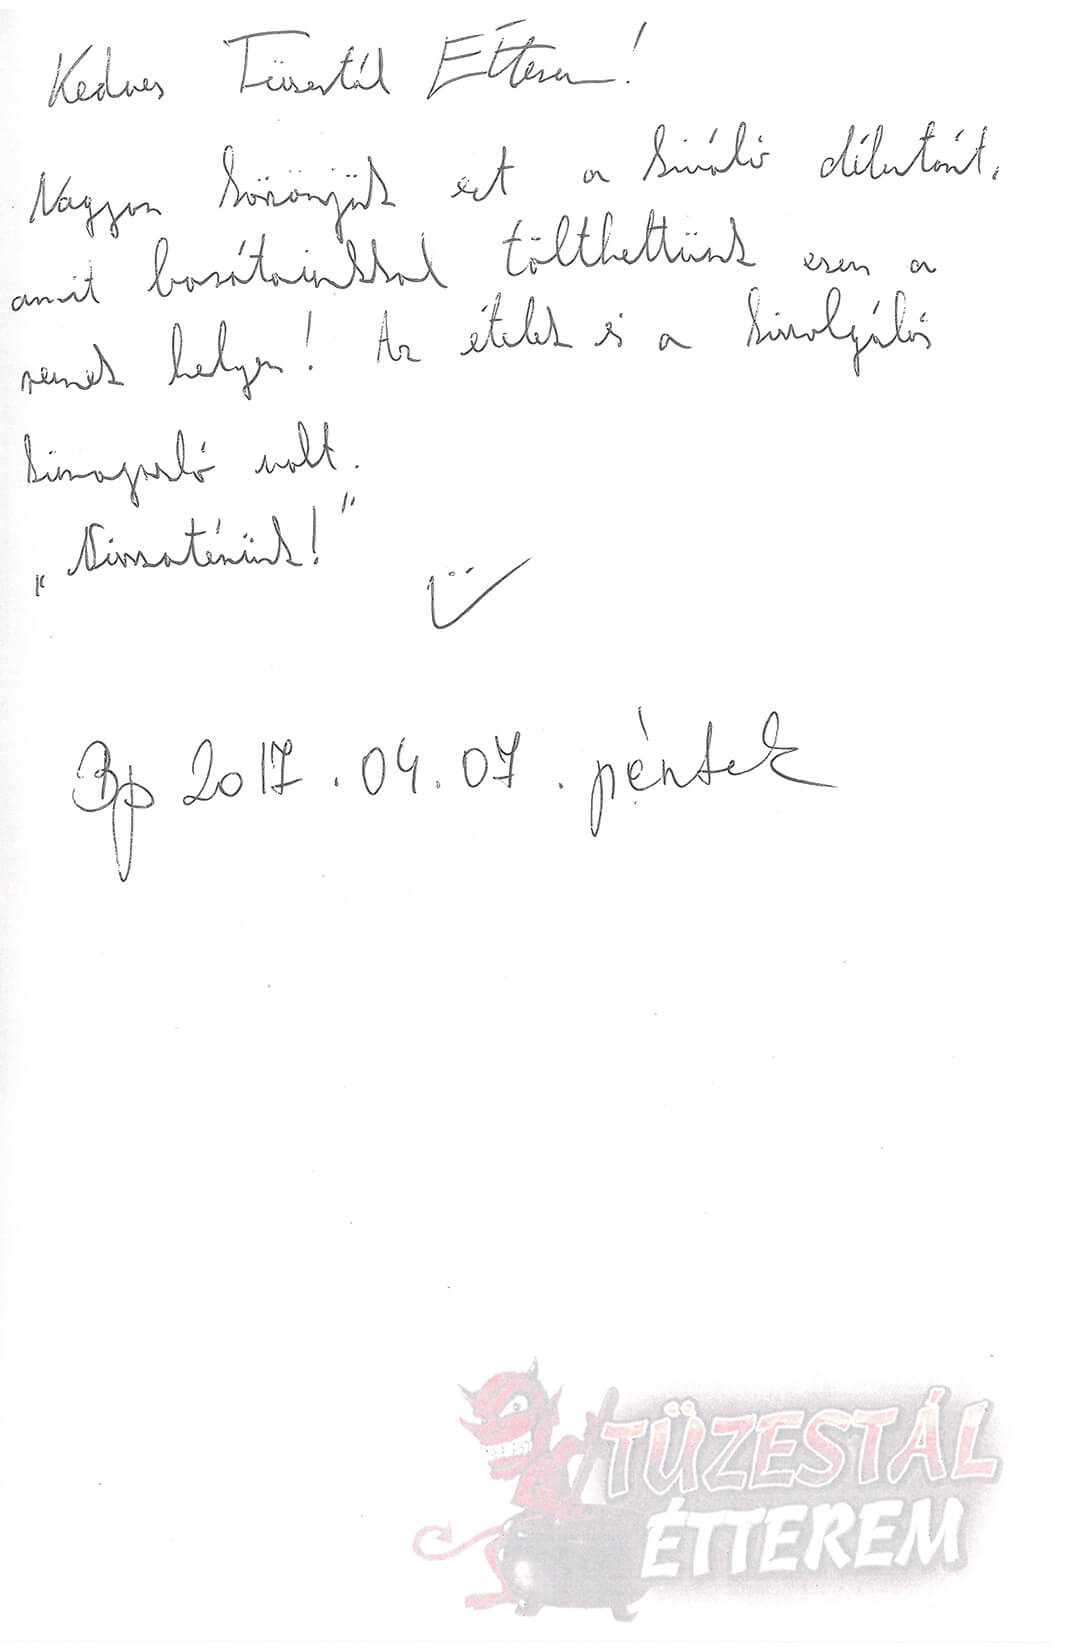 Kedves Tüzestál Étterem!
Nagyon köszönjük ezt a kiváló délutánt,
amit barátainkkal tölthettünk ezen a
remek helyen! Az ételek és a kiszolgálás
kimagasló volt.
„Visszatérünk!"
Bp 2017.04.07. péntek
TÜZESTÁL
ÉTTEREM